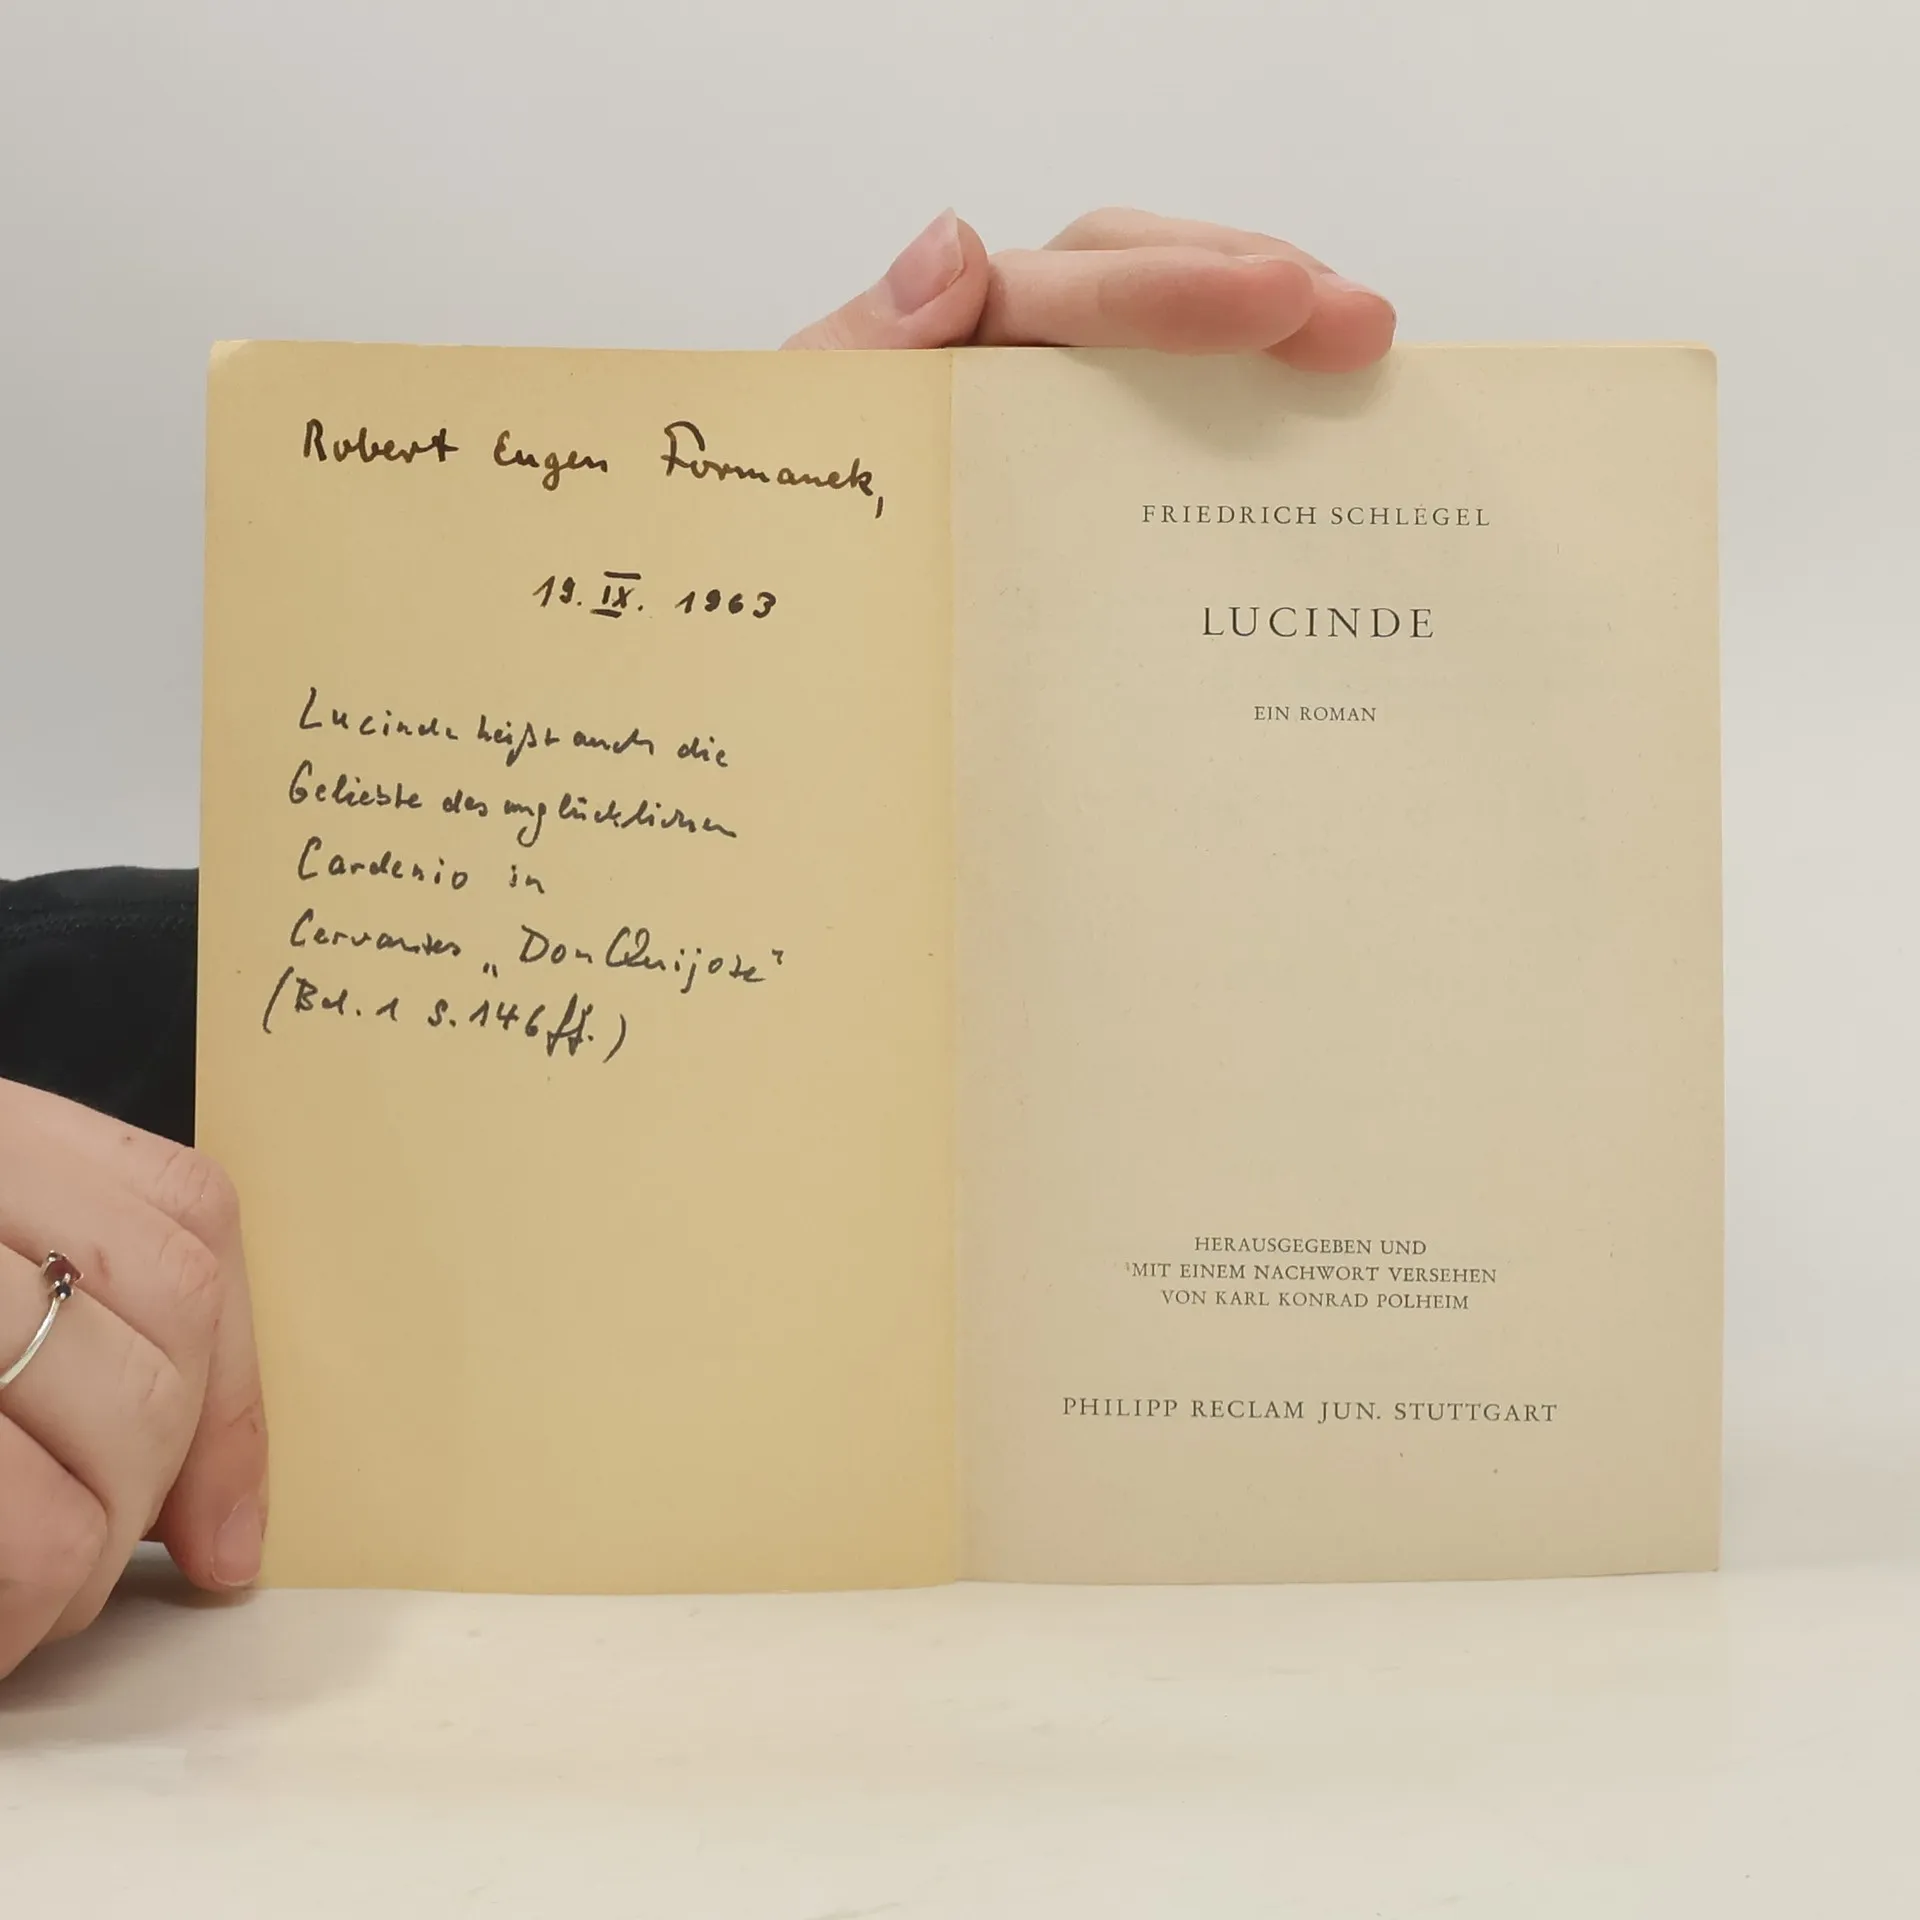 Robert Eugen Formanek,
19. IX. 1963
Lucinde heißt auch die
Geliebte des unglücklichen
Cardenio in
Cervantes „Don Quijote"
(Bd. 1 S. 146 ff.)
FRIEDRICH SCHLEGEL
LUCINDE
EIN ROMAN
HERAUSGEGEBEN UND
MIT EINEM NACHWORT VERSEHEN
VON KARL KONRAD POLHEIM
PHILIPP RECLAM JUN. STUTTGART